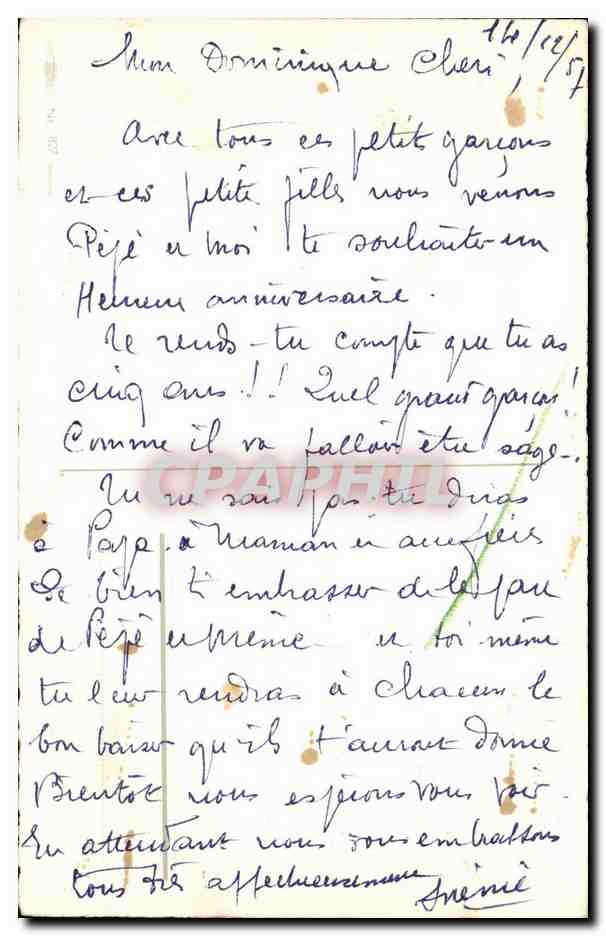 14/12/57
Mon Dominique Cheri,
Avec tous ces petits garçons
et ces petite filles nous venons
Péjé et Moi te souhaiter un
Heureux anniversaire.
Te rends-tu compte que tu as
cinq ans!! Quel grand garçon!
Comme il va falloir être sage.
CPAPHIL
Tu ne sais pas tu diras
à Papa à Maman et
de bien t'embrasser de la part
de Péjé et et toi même
tu leur rendras à chacun le
bon baiser qu'ils t'auront donné
Bientôt nous espérons vous voir.
En attendant nous vous embrassons
tous très affectueusement